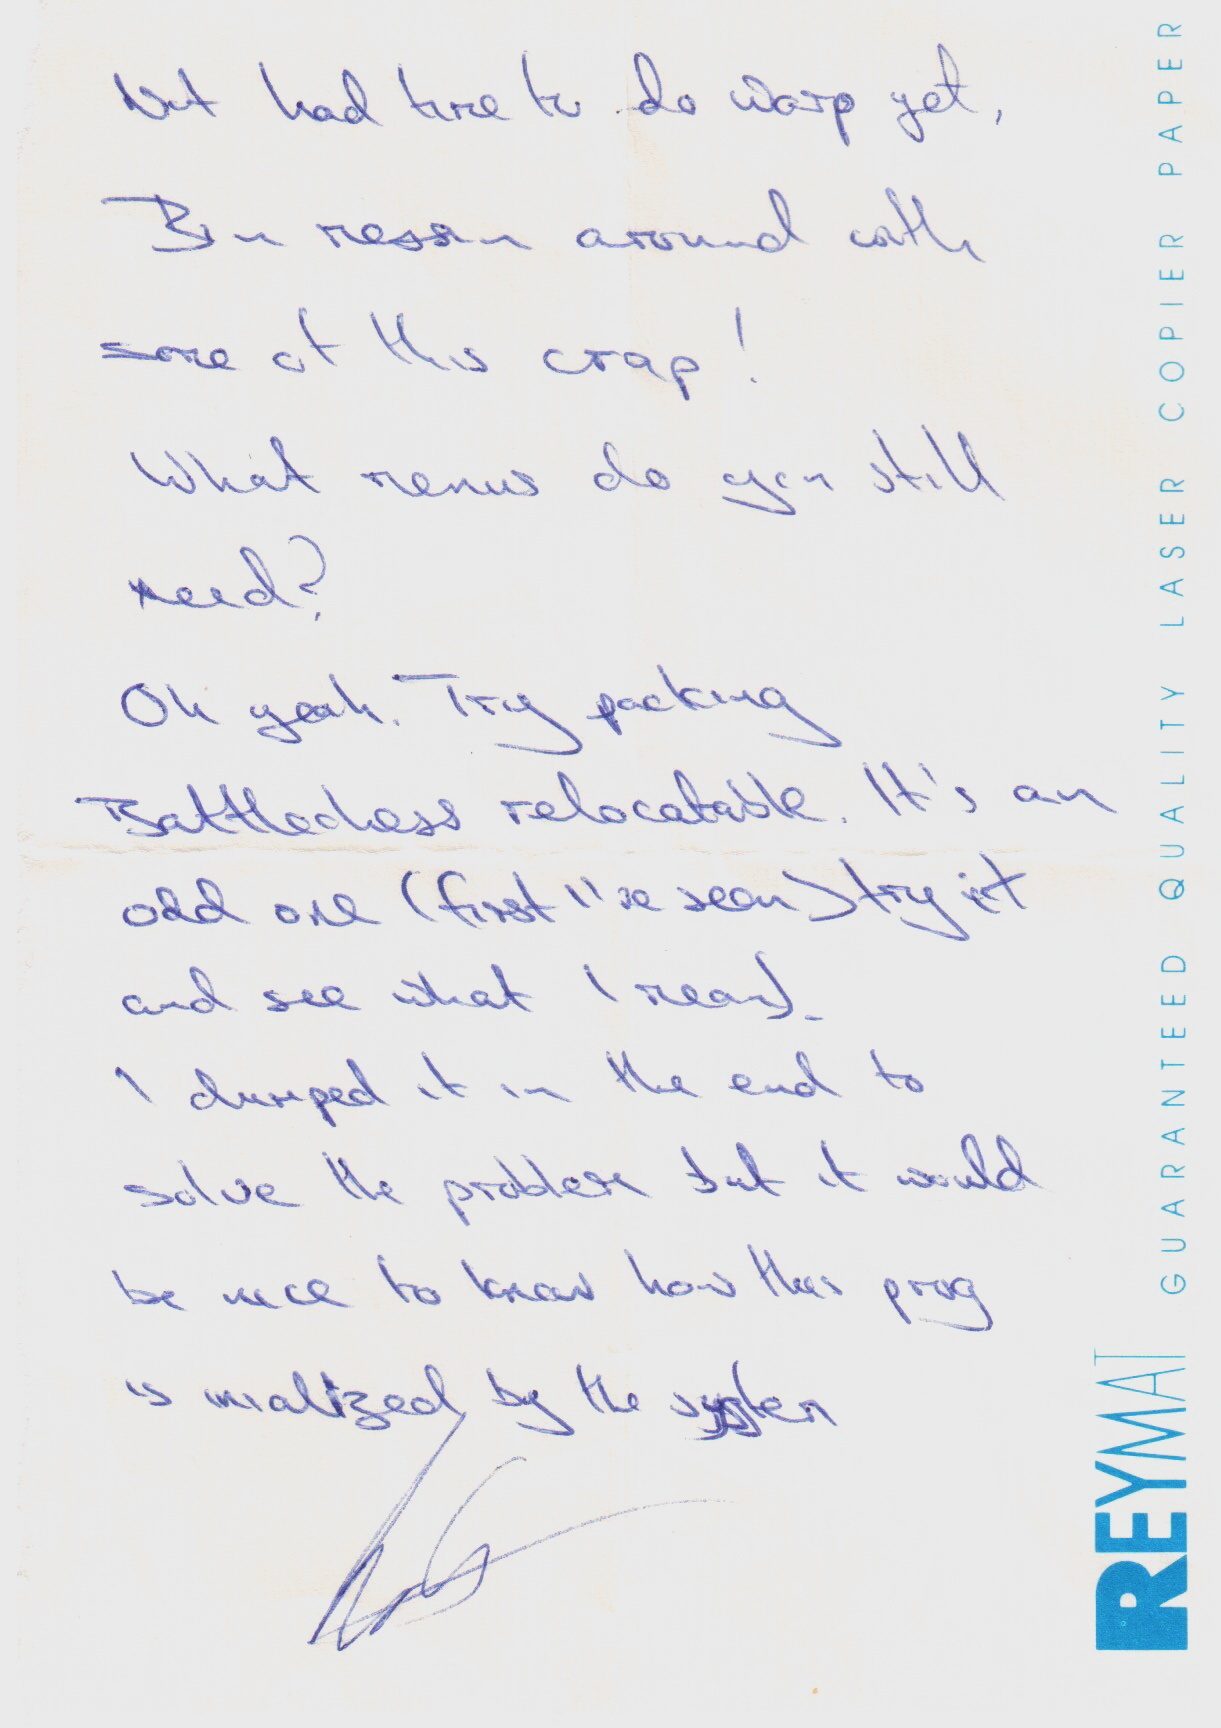 Not had time to do warp yet,
Bin messin around with
some of this crap!
What menus do you still
need?
Oh yeah. Try packing
Battlechess relocatable. It's an
odd one (first I've seen) try it
and see what I mean).
I dumped it in the end to
solve the problem but it would
be nice to know how this prog
is inialtized by the system
GUARANTEED QUALITY LASER COPIER PAPER
REYMAT